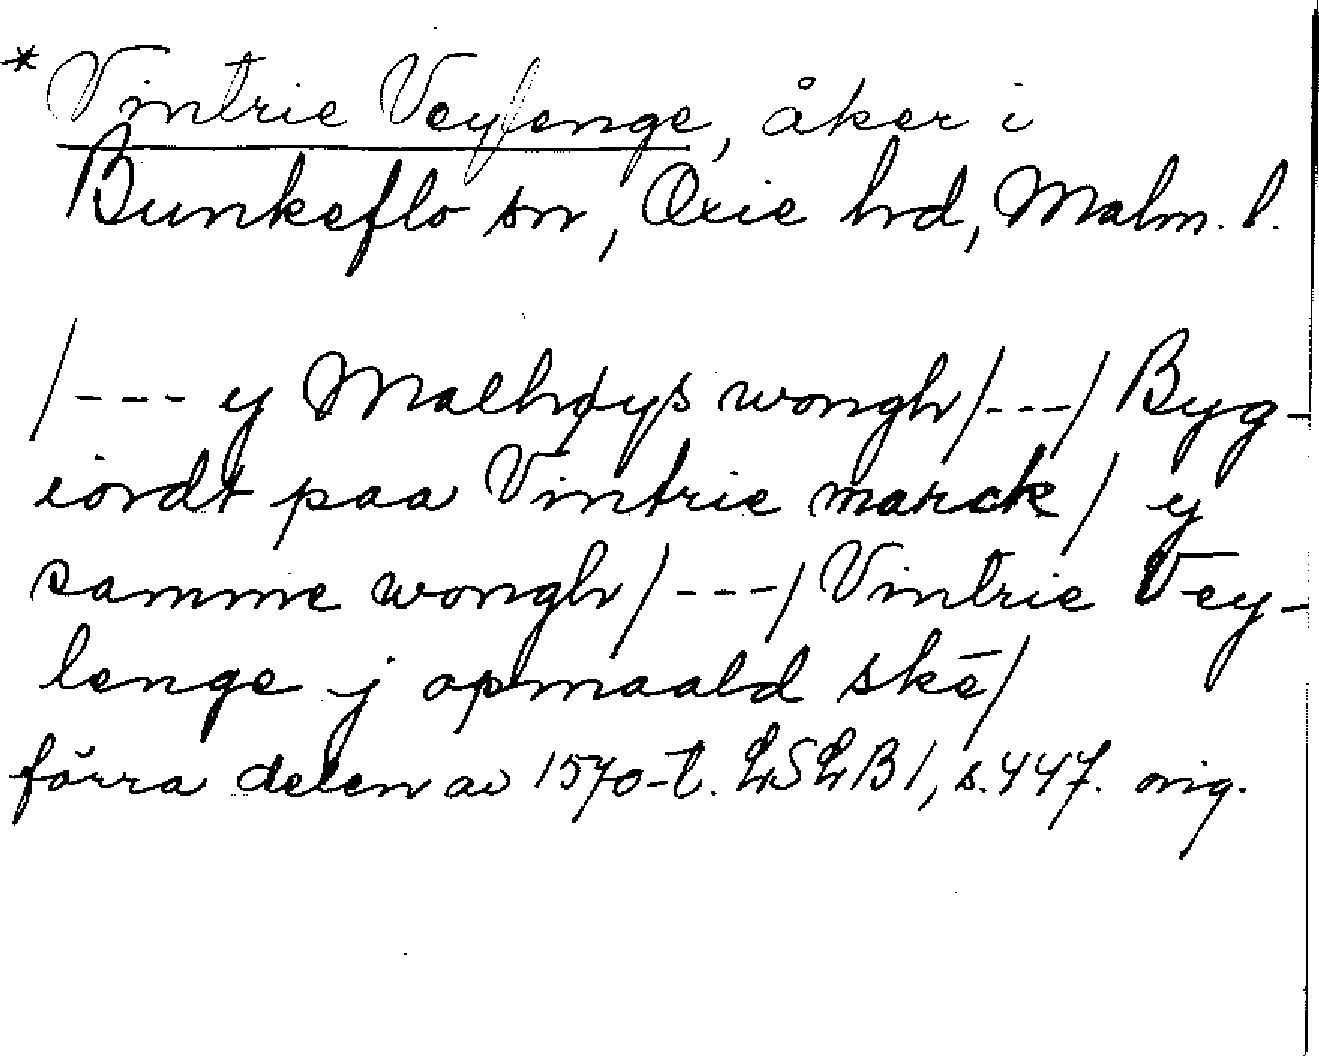 * Vintrie Veylenge, åker i
Bunkeflo sn, Oxie hrd, Malm. l.
/--- y Malhøys wongh/---/ Byg-
iordt paa Vintrie marck/ y
samme wongh/---/ Vintrie Vey-
lenge j opmaald skē/
förra delen av 1570-t. LSLB1, s. 447. orig.